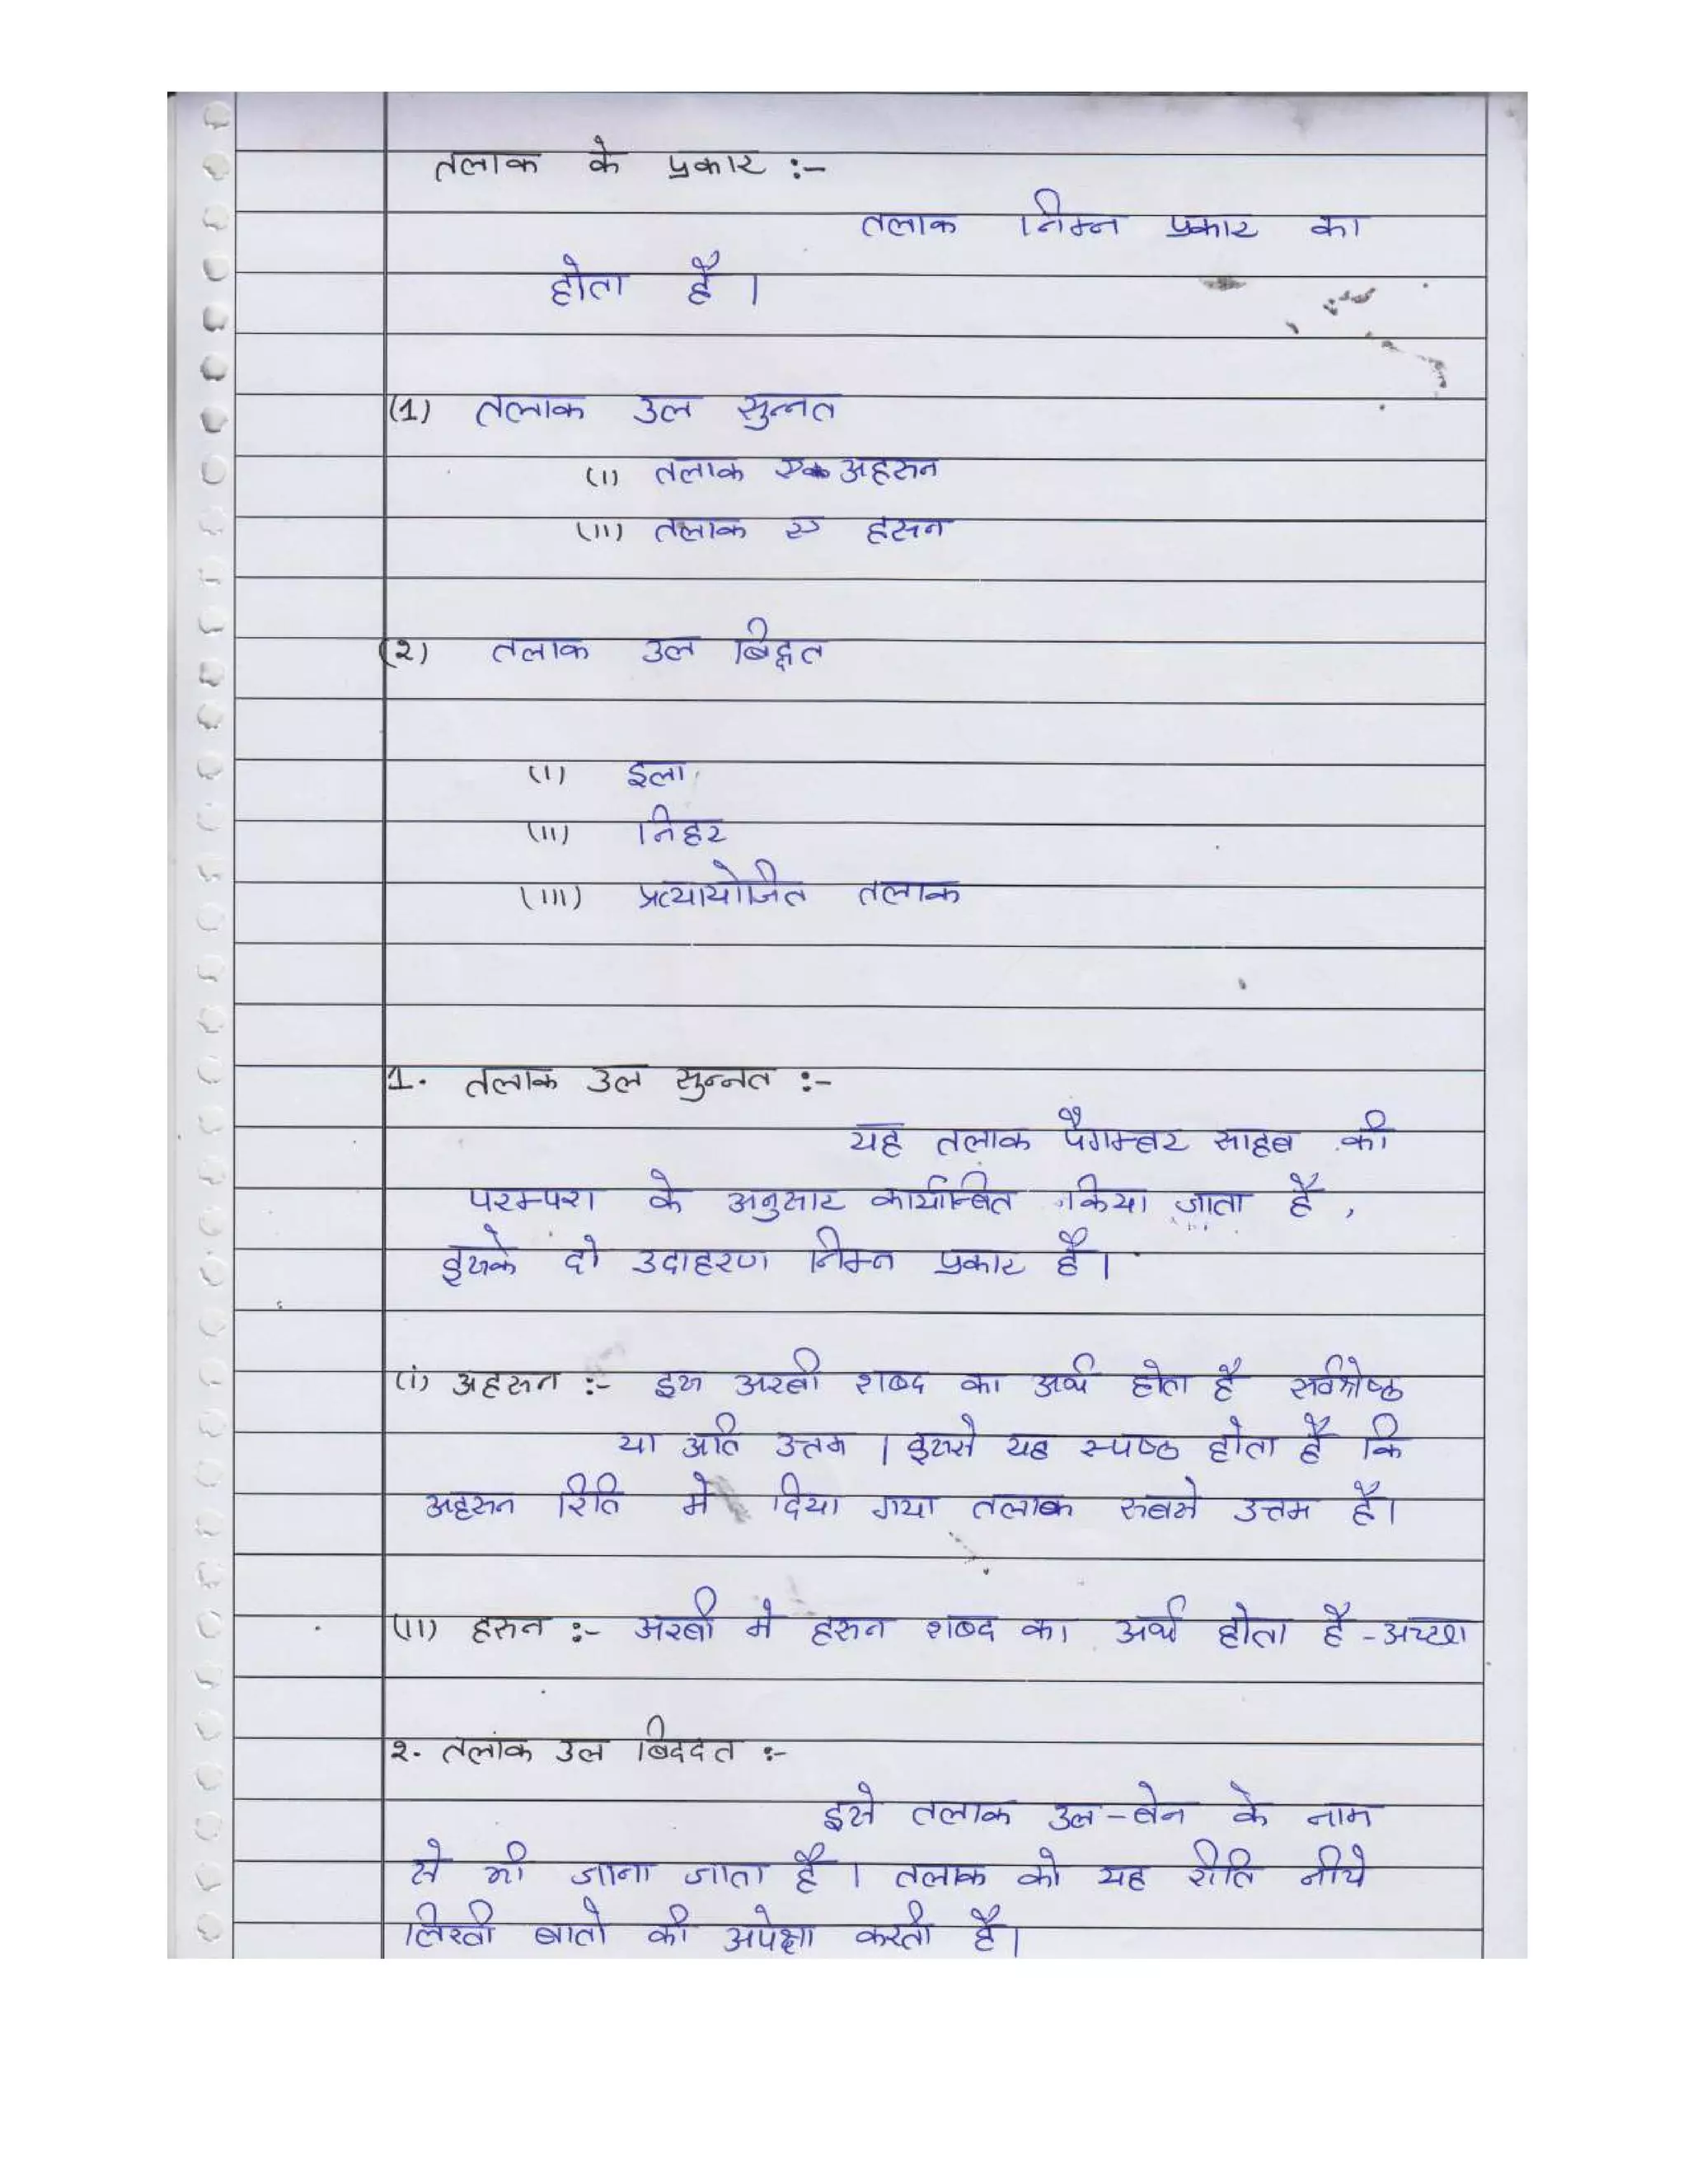 तलाक के प्रकार :-
तलाक निम्न प्रकार का
होता है।
(1) तलाक उल सुन्नत
(I) तलाक अहसन
(II) तलाक ए हसन
(२) तलाक उल बिद्दत
(I) इला
(II) निहर
(III) प्रत्यायोजित तलाक
1. तलाक उल सुन्नत :-
यह तलाक पैगम्बर साहब की
परम्परा के अनुसार कार्यान्वित किया जाता है,
इसके दो उदाहरण निम्न प्रकार है।
(i) अहसन :- इस अरबी शब्द का अर्थ होता है सर्वश्रेष्ठ
या अति उत्तम। इससे यह स्पष्ठ होता है कि
अहसन रिति मे दिया गया तलाक सबसे उत्तम है।
(II) हसन :- अरबी मे हसन शब्द का अर्थ होता है - अच्छा
२. तलाक उल बिददत :-
इसे तलाक उल-बेन के नाम
से भी जाना जाता है। तलाक को यह रीति नीचे
लिखी बातो की अपेक्षा करती है।